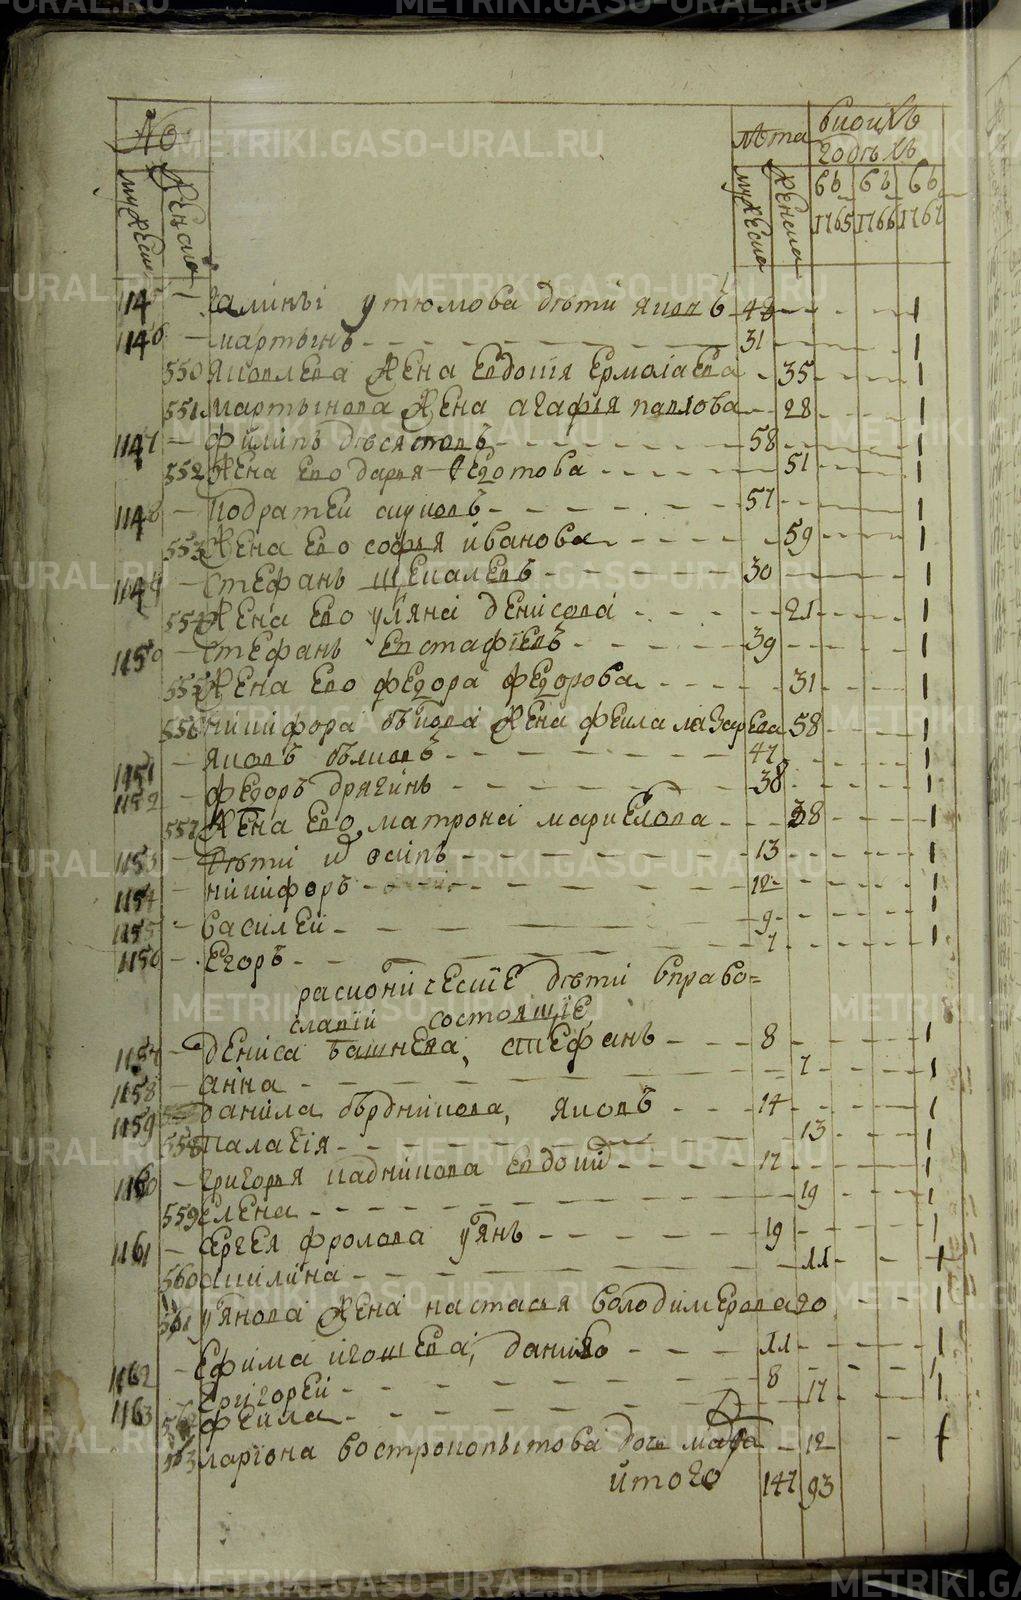 METRIKI.GASO-URAL.RU
№
мужеска женска лѣта мужеска женска в коихъ годѣхъ
въ 1765 въ 1766 въ 1767
1145 галины утюмова дѣти яковъ 43
1146 мартынъ 31
550 яковлева жена евдокия ермолаева 35
551 мартынова жена агафья павлова 28
1147 филипъ девятовъ 58
552 жена ево дарья федотова 51
1148 кодратей сидковъ 57
553 жена ево софья иванова 59
1149 стефанъ щекалевъ 30
554 жена ево уляна денисова 21
1150 стефанъ евстафіевъ 39
555 жена ево федора федорова 31
556 никифора быкова жена фекла лазарева 58
1151 яковъ бѣликовъ 47
1152 федоръ дрягинъ 38
557 жена ево матрона маркелова 38
1153 дѣти их осипъ 13
1154 никифоръ 12
1155 василей 9
1156 егоръ 7
раскольническіе дѣти в право=
славіи состоящіе
1157 дениса башнева, стефанъ 8
1158 анна 7
1159 данила бѣрдникова, яковъ 14
558 палагія 13
1160 григорья кадникова евдоким 17
559 елена 19
1161 сергея фролова уянъ 19
560 акилина 11
561 уянова жена настасья володимерова 20
1162 ефима игошева, данило 11
1163 григорей 8
562 фекла 17
563 лариона вострокопытова дочь мавра 12
итого 147 93